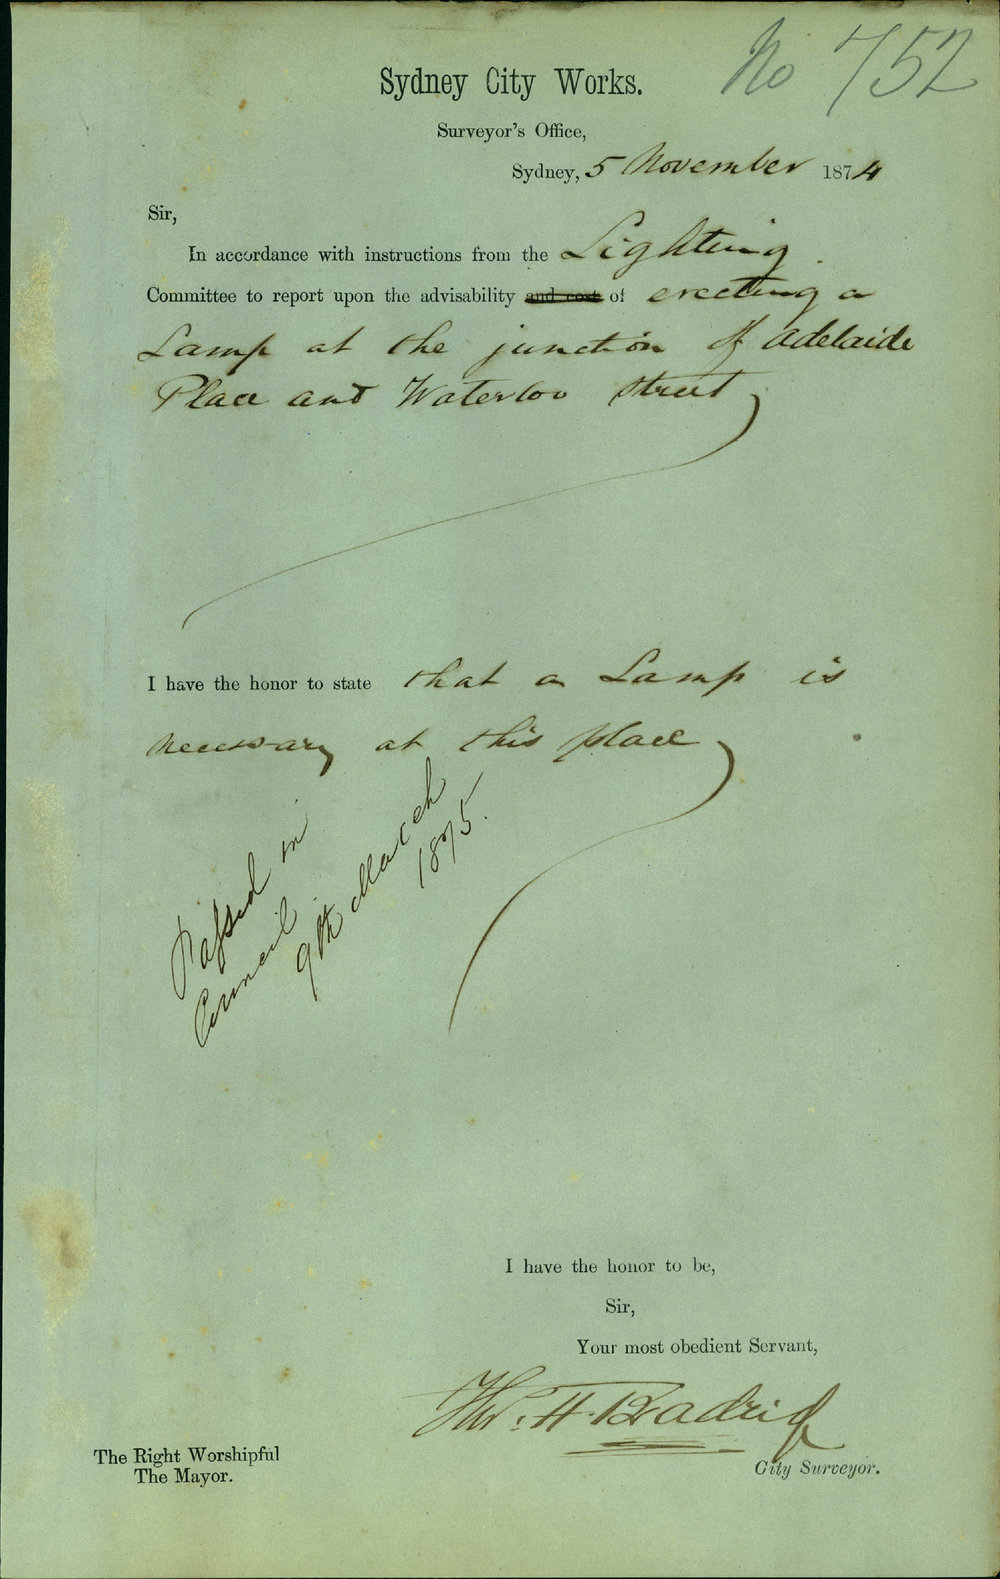 No 752
Sydney City Works.
Surveyor's Office,
Sydney, 5 November 1874
Sir,
In accordance with instructions from the Lighting
Committee to report upon the advisability and cost of erecting a
Lamp at the junction of Adelaide
Place and Waterloo Street
I have the honor to state that a Lamp is
necessary at this place
Passed in
Council
9th March
1875.
I have the honor to be,
Sir,
Your most obedient Servant,
Thos. H. Bradridge
City Surveyor.
The Right Worshipful
The Mayor.